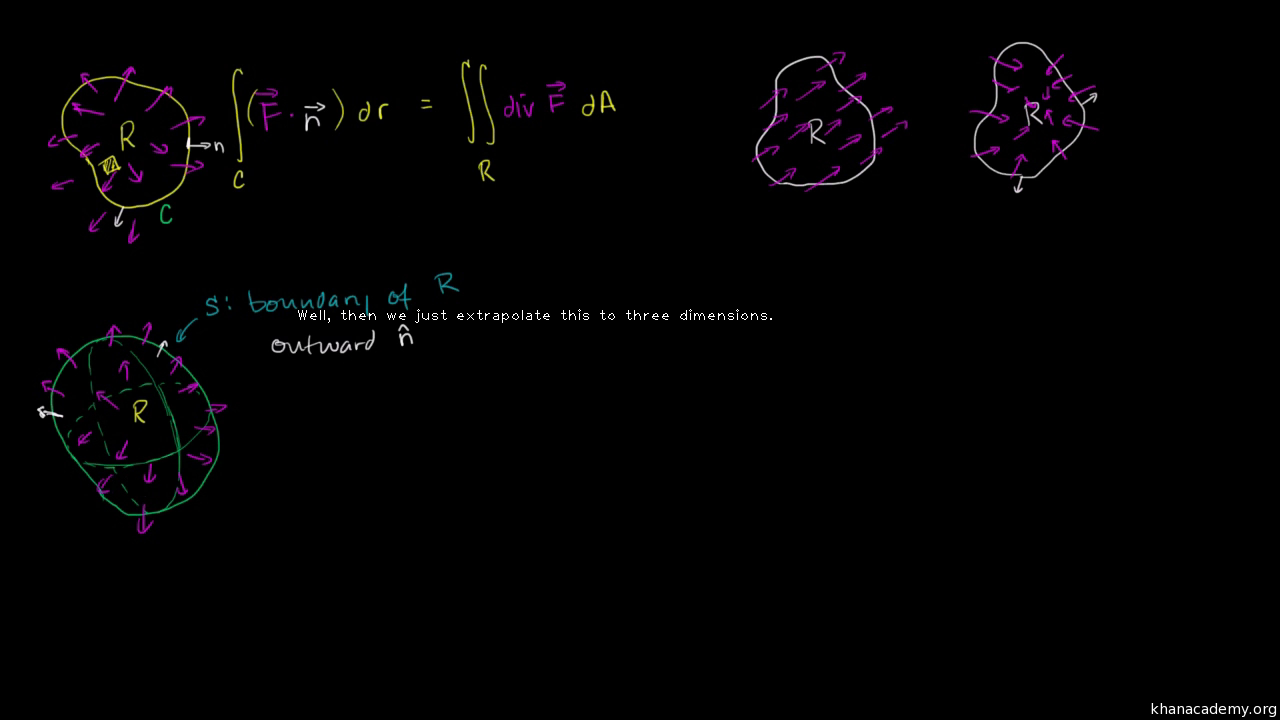 R
n
C
∫_C (F⃗ · n⃗) dr = ∬_R div F⃗ dA
R
R
S: boundary of R
Well, then we just extrapolate this to three dimensions.
outward n̂
R
khanacademy.org